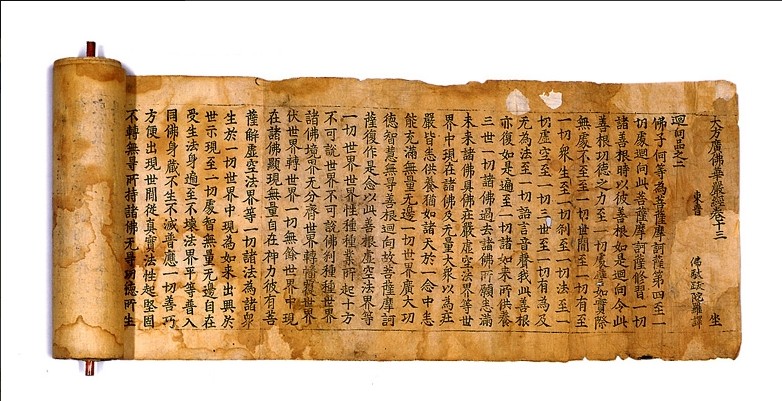 大方廣佛華嚴經卷十三 坐
東晉 佛馱跋陀羅譯
迴向品之二
佛子何等為菩薩摩訶薩第四至一
切處迴向此菩薩摩訶薩修習一切
諸善根時以彼善根如是迴向令此
善根功德之力至一切處譬如實際
無處不至至一切世間至一切有至
一切衆生至一切刹至一切法至一
切虛空至一切三世至一切有為及
无為法至一切語言音聲我此善根
亦復如是遍至一切諸如來所供養
三世一切諸佛過去諸佛所願悉滿
未來諸佛具佛莊嚴虛空法界等世
界中現在諸佛及无量大衆以為莊
嚴皆悉供養猶如諸天於一念中悉
能充滿無量无邊一切世界廣大功
德智慧無㝵善根迴向故菩薩摩訶
薩復作是念以此善根虛空法界等
一切世界世界性種種業所起十方
不可說世界不可說佛刹種種世界
諸佛境界无分齊世界轉世界
伏世界轉世界一切無餘世界中現
在諸佛顯現無量自在神力彼有菩
薩解虛空法界等一切諸法為諸眾
生於一切世界中現為如來出興於
世示現至一切處智無量无邊自在
受生法身遍至不壞法界平等普入
同佛身藏不生不滅普應一切善巧
方便出現世間從真實法性起堅固
不轉無㝵所持諸佛无㝵功德所生